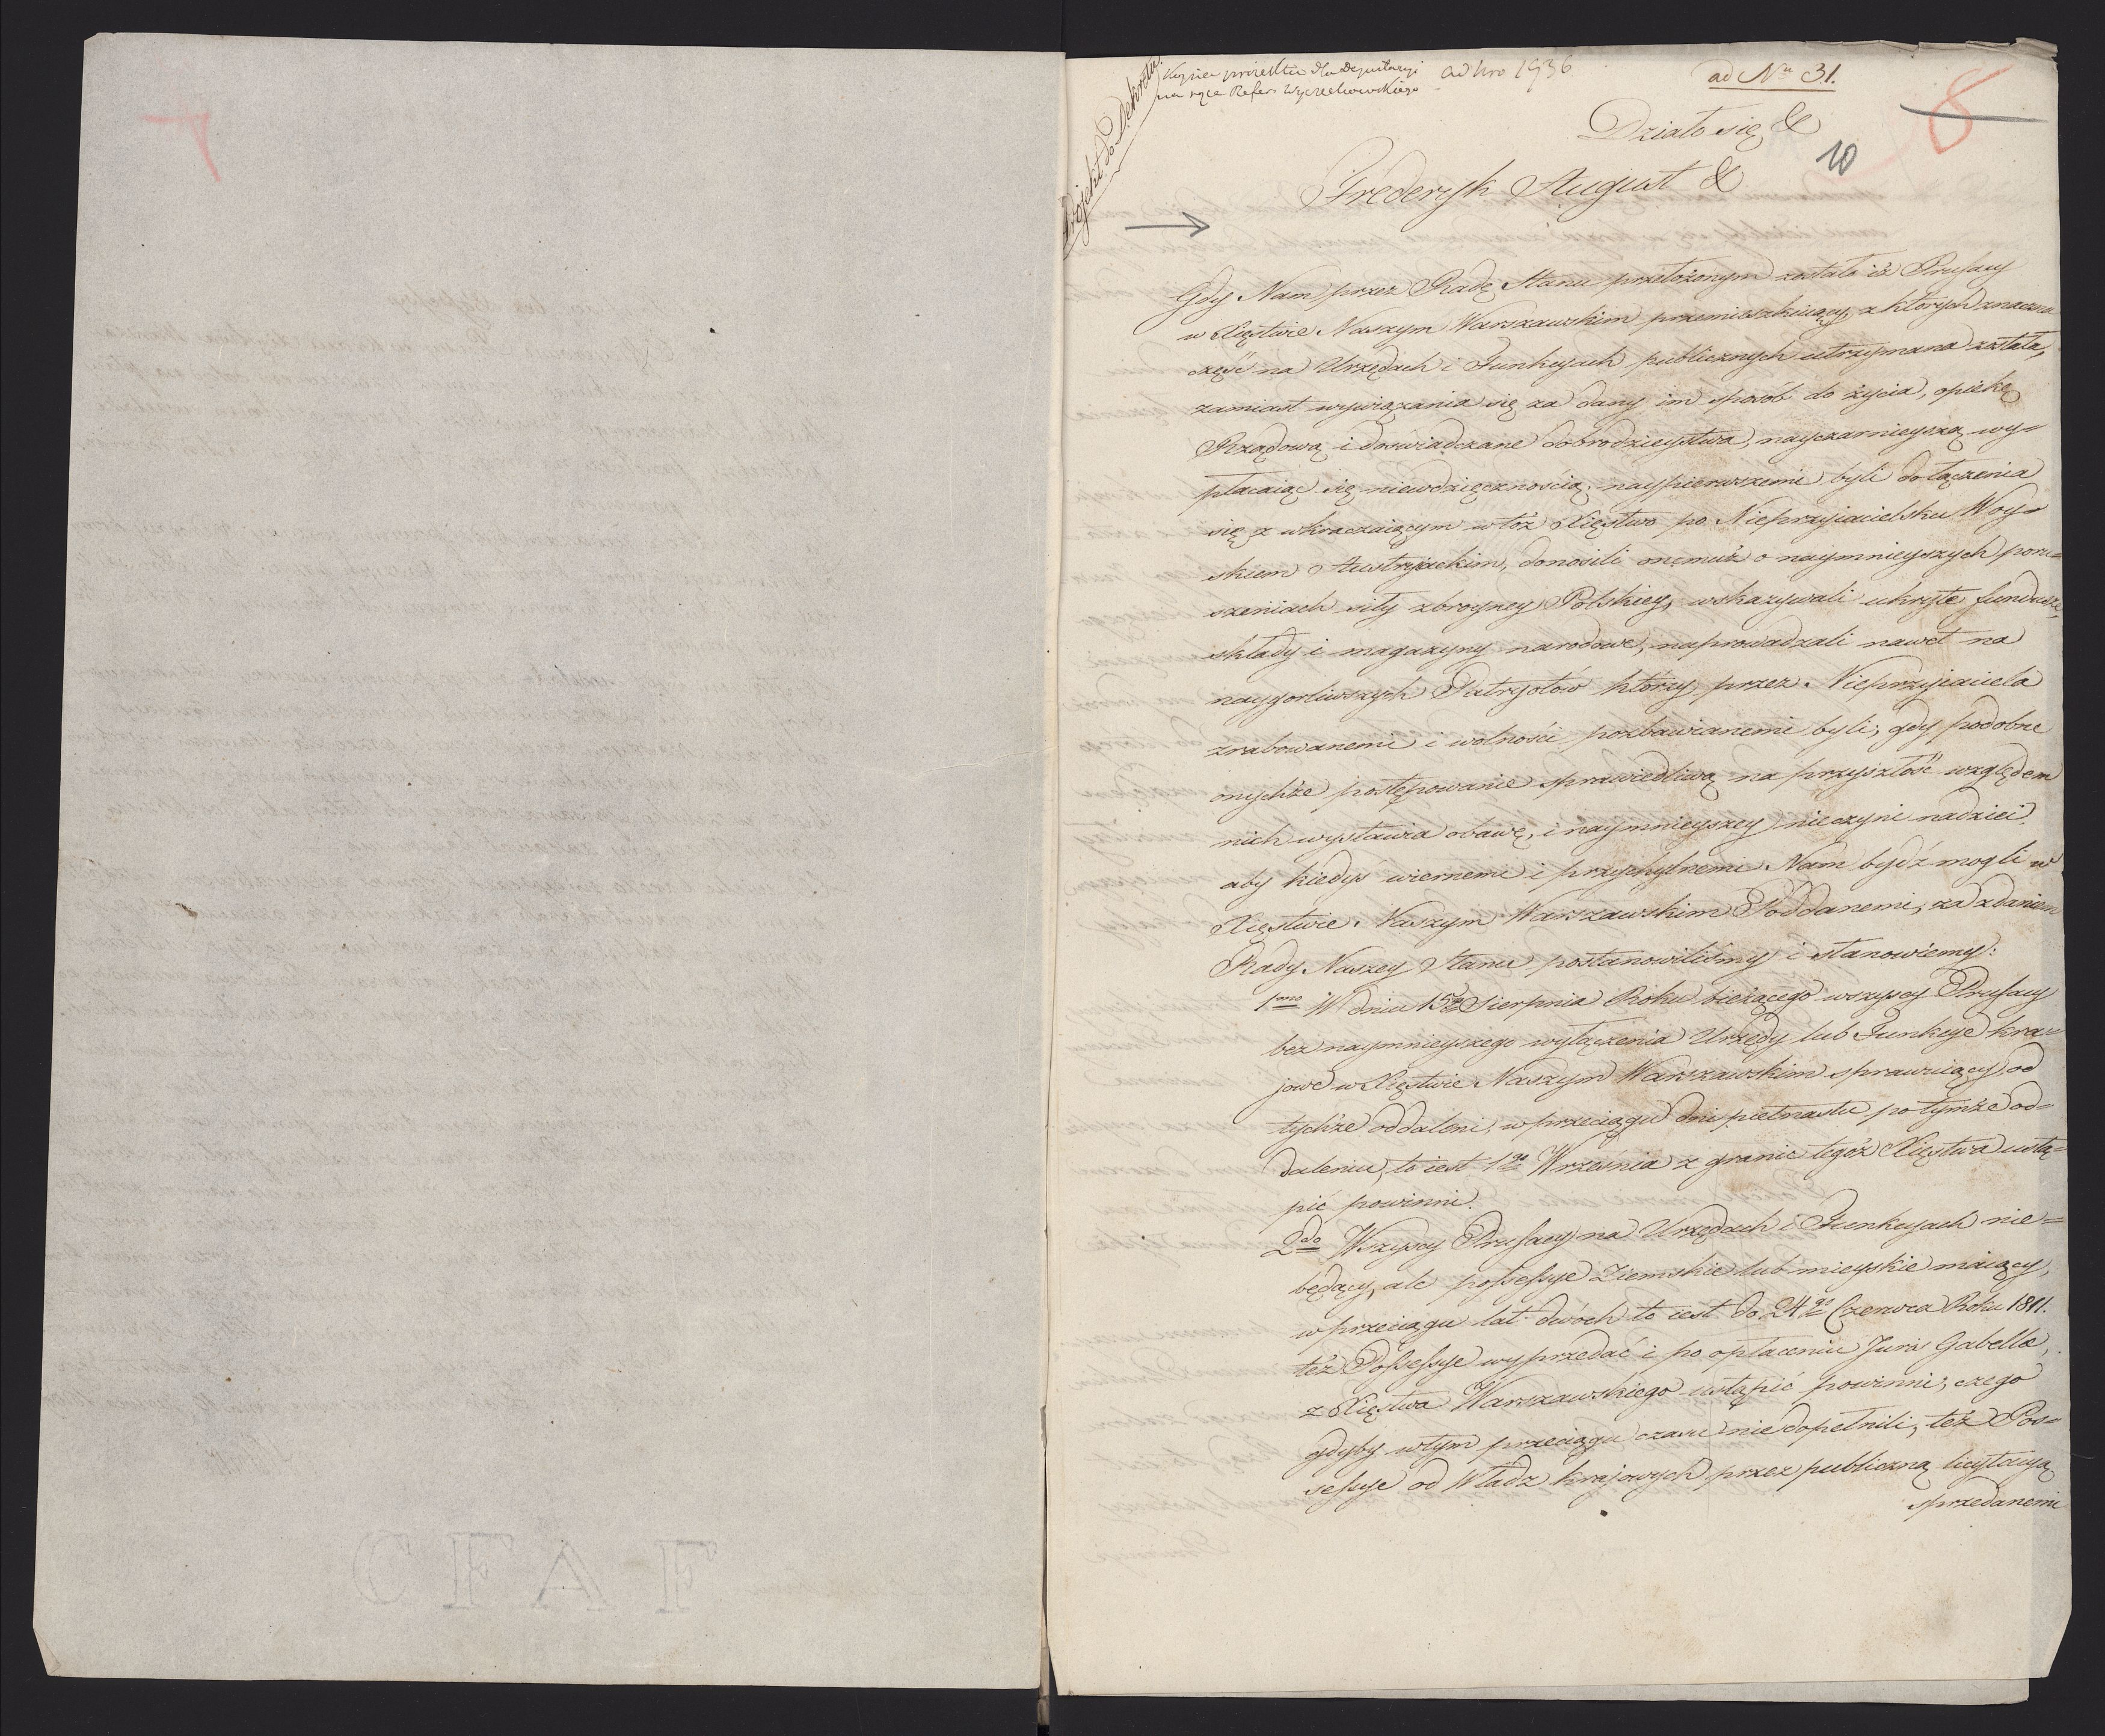 Projekt do Dekretu.
Kopiea projektu dla Deputacyi
na ręce Refer: Wyczechowskiego
ad Nro 1936
ad Nr 31.
8
Działo się &
10
Frederyk August &
Gdy Nam przez Radę Stanu przełożonym zostało iż Prusacy
w Xięstwie Naszym Warszawskim przemieszkuiący, z których znaczna
część na Urzędach i Funkcyach publicznych utrzymana została,
zamiast wywiązania się za dany im sposób do życia, opiekę
Rządową i doświadczane dobrodzieystwa, nayczarnieyszą wy=
płacaiąc się niewdzięcznością, naypierwszemi byli do łączenia
się z wkraczaiącym w toż Xięstwo po Nieprzyiacielsku Woy=
skiem Austryackim, donosili onemuż o naymnieyszych poru=
szeniach siły zbroyney Polskiey, wskazywali ukryte fundusze,
składy i magazyny narodowe, naprowadzali nawet na
naygorliwszych Patryotów którzy przez Nieprzyiaciela
zrabowanemi i wolności pozbawianemi byli; gdy podobne
onychże postępowanie sprawiedliwą na przyszłość względem
nich wystawia obawę, i naymnieyszey nie czyni nadziei
aby kiedyś wiernemi i przychylnemi Nam bydź mogli w
Xięstwie Naszym Warszawskim Poddanemi, za zdaniem
Rady Naszey Stanu postanowiliśmy i stanowiemy:
1mo W dniu 15go Sierpnia Roku bieżącego wszyscy Prusacy
bez naymnieyszego wyłączenia Urzędy lub Funkcye kra=
jowe w Xięstwie Naszym Warszawskim sprawuiący, od
tychże oddaleni, w przeciągu dni pietnastu po tymże od=
daleniu, to iest 1go Września z granic tegoż Xięstwa ustą=
pić powinni.
2do Wszyscy Prusacy na Urzędach i Funkcyach nie=
będący, ale possessye Ziemskie lub mieyskie maiący,
w przeciągu lat dwóch to iest do 24go Czerwca Roku 1811.
też Possessye wyprzedać i po opłaceniu Juris Gabellæ,
z Xięstwa Warszawskiego ustąpić powinni; czego
gdyby w tym przeciągu czasu nie dopełnili, też Pos=
sessye od Władz krajowych przez publiczną licytacyą
sprzedanemi
CFAF